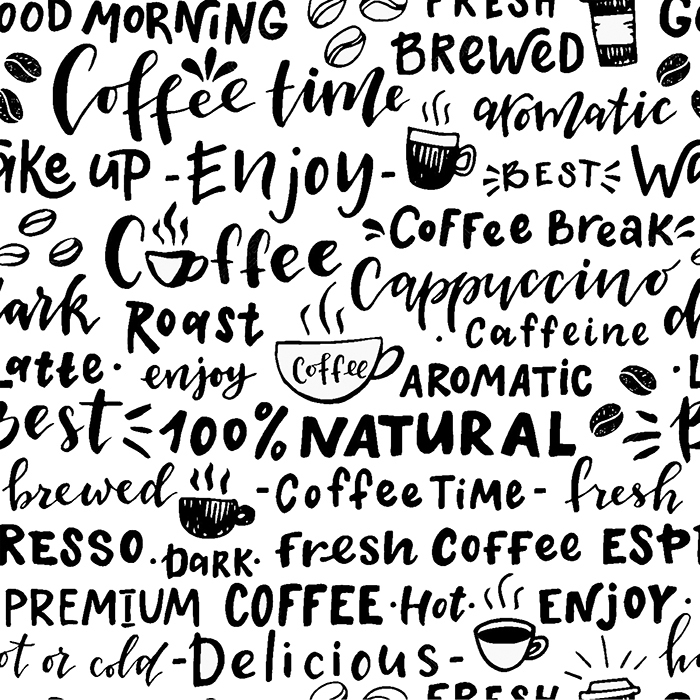 OOD MORNING FRESH G
BREWED
Coffee time aromatic
ake up -Enjoy- BEST Wa
Coffee Coffee Break
Cappuccino
dark Roast Caffeine d
Latte· enjoy Coffee AROMATIC ·L
Best 100% NATURAL B
brewed -Coffee Time- fresh
RESSO· ·DARK· fresh COFFEE ESP
PREMIUM COFFEE ·Hot· ENJOY·
ot or cold -Delicious- h
FRESH